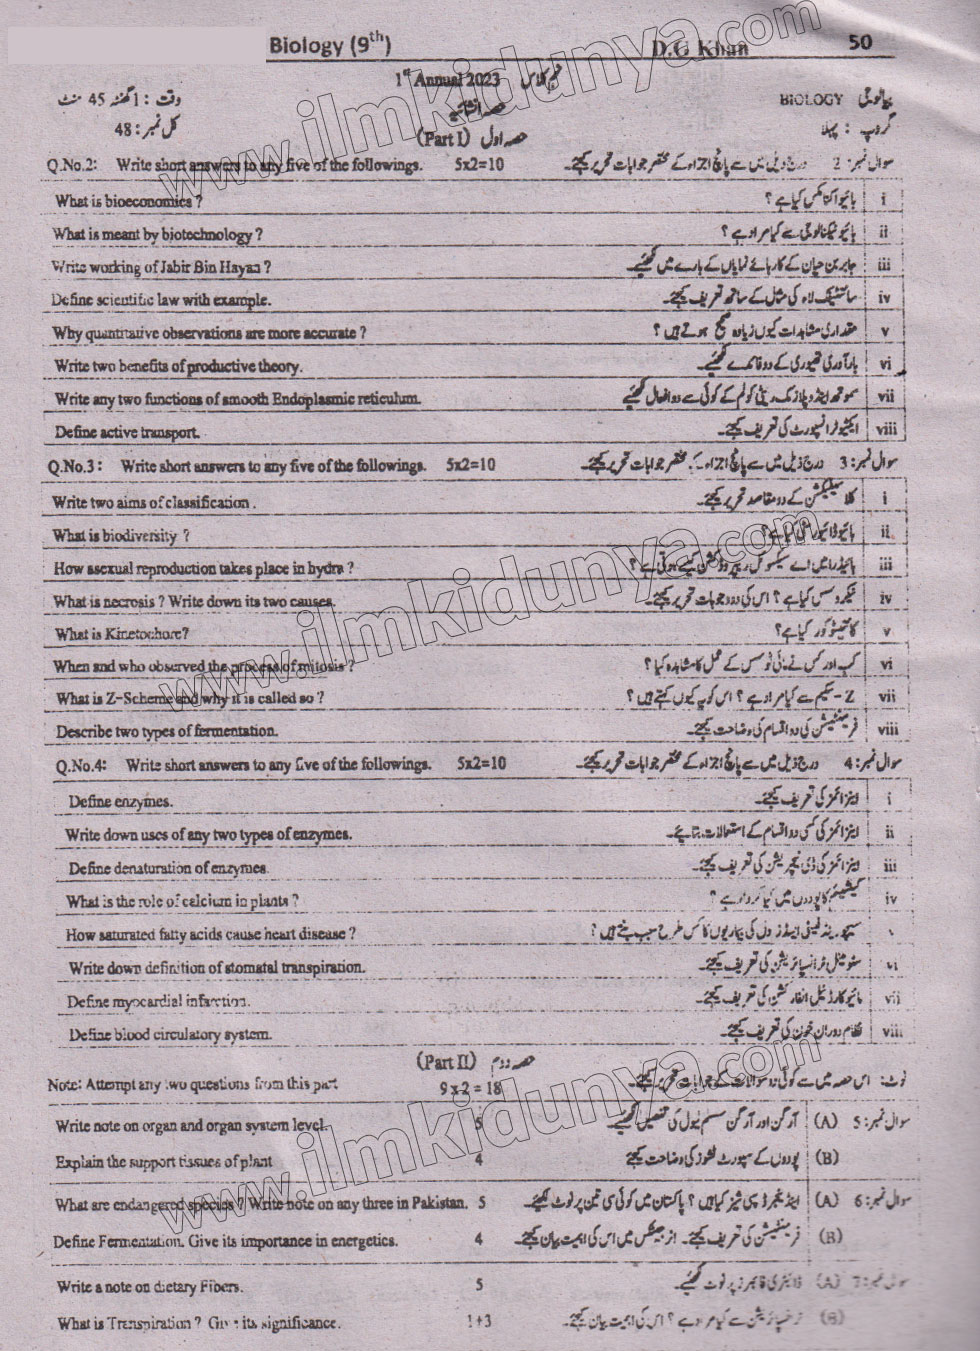 Biology (9th) D.G Khan 50
1st Annual 2023 نہم کلاس
وقت : 1 گھنٹہ 45 منٹ حصہ انشائیہ BIOLOGY بیالوجی
کل نمبر : 48 (Part I) حصہ اول گروپ : پہلا
Q.No.2: Write short answers to any five of the followings. 5x2=10 درج ذیل میں سے پانچ اجزاء کے مختصر جوابات تحریر کیجئے۔ سوال نمبر: 2
What is bioeconomics ? بائیو اکنامکس کیا ہے ؟ i
What is meant by biotechnology ? بائیو ٹیکنالوجی سے کیا مراد ہے ؟ ii
Write working of Jabir Bin Hayan ? جابر بن حیان کے کارہائے نمایاں کے بارے میں لکھیے۔ iii
Define scientific law with example. سائنٹیفک لاء کی مثال کے ساتھ تعریف کیجئے۔ iv
Why quantitative observations are more accurate ? مقداری مشاہدات کیوں زیادہ صحیح ہوتے ہیں ؟ v
Write two benefits of productive theory. بارآوری تھیوری کے دو فائدے لکھیے۔ vi
Write any two functions of smooth Endoplasmic reticulum. سموتھ اینڈوپلازمک ریٹی کولم کے کوئی سے دو افعال لکھیئے vii
Define active transport. ایکٹیو ٹرانسپورٹ کی تعریف کیجئے۔ viii
Q.No.3: Write short answers to any five of the followings. 5x2=10 درج ذیل میں سے پانچ اجزاء کے مختصر جوابات تحریر کیجئے۔ سوال نمبر: 3
Write two aims of classification . کلاسیفیکیشن کے دو مقاصد تحریر کیجئے۔ i
What is biodiversity ? بائیوڈائیورسٹی کیا ہے؟ ii
How asexual reproduction takes place in hydra ? ہائیڈرا میں اے سیکسوئل ریپروڈکشن کیسے ہوتی ہے ؟ iii
What is necrosis ? Write down its two causes. نیکروسس کیا ہے ؟ اس کی دو وجوہات تحریر کیجئے۔ iv
What is Kinetochore? کائنیٹوکور کیا ہے؟ v
When and who observed the process of mitosis ? کب اور کس نے مائی ٹوسس کے عمل کا مشاہدہ کیا ؟ vi
What is Z-Scheme and why it is called so ? Z - سکیم سے کیا مراد ہے ؟ اس کو یہ کیوں کہتے ہیں ؟ vii
Describe two types of fermentation. فرمنٹیشن کی دو اقسام کی وضاحت کیجئے۔ viii
Q.No.4: Write short answers to any five of the followings. 5x2=10 درج ذیل میں سے پانچ اجزاء کے مختصر جوابات تحریر کیجئے۔ سوال نمبر: 4
Define enzymes. اینزائمز کی تعریف کیجئے۔ i
Write down uses of any two types of enzymes. اینزائمز کی کسی دو اقسام کے استعمالات بتایئے۔ ii
Define denaturation of enzymes. اینزائمز کی ڈی نیچریشن کی تعریف کیجئے۔ iii
What is the role of calcium in plants ? کیلشیم کا پودوں میں کیا کردار ہے ؟ iv
How saturated fatty acids cause heart disease ? سیچوریٹڈ فیٹی ایسڈز دل کی بیماریوں کا کس طرح سبب بنتے ہیں ؟
Write down definition of stomatal transpiration. سٹومیٹل ٹرانسپائریشن کی تعریف کیجئے۔ vi
Define myocardial infarction. مائیوکارڈیل انفارکشن کی تعریف کیجئے۔ vii
Define blood circulatory system. نظام دوران خون کی تعریف کیجئے۔ viii
(Part II) حصہ دوم
Note: Attempt any two questions from this part 9x2 = 18 نوٹ: اس حصہ میں سے کوئی دو سوالات کے جوابات تحریر کیجئے۔
Write note on organ and organ system level. 5 آرگن اور آرگن سسٹم لیول کی تفصیل لکھیئے۔ (A) سوال نمبر: 5
Explain the support tissues of plant 4 پودوں کے سپورٹ ٹشوز کی وضاحت کیجئے (B)
What are endangered species ? Write note on any three in Pakistan. 5 اینڈینجرڈ سپی شیز کیا ہیں ؟ پاکستان میں کوئی سی تین پر نوٹ لکھیئے۔ (A) سوال نمبر: 6
Define Fermentation. Give its importance in energetics. 4 فرمنٹیشن کی تعریف کیجئے۔ انرجیٹکس میں اس کی اہمیت بیان کیجئے۔ (B)
Write a note on dietary Fibers. 5 ڈائٹری فائبرز پر نوٹ لکھیئے۔ (A) سوال نمبر: 7
What is Transpiration ? Give its significance. 1+3 ٹرانسپائریشن سے کیا مراد ہے ؟ اس کی اہمیت بیان کیجئے۔ (B)
www.ilmkidunya.com
www.ilmkidunya.com
www.ilmkidunya.com